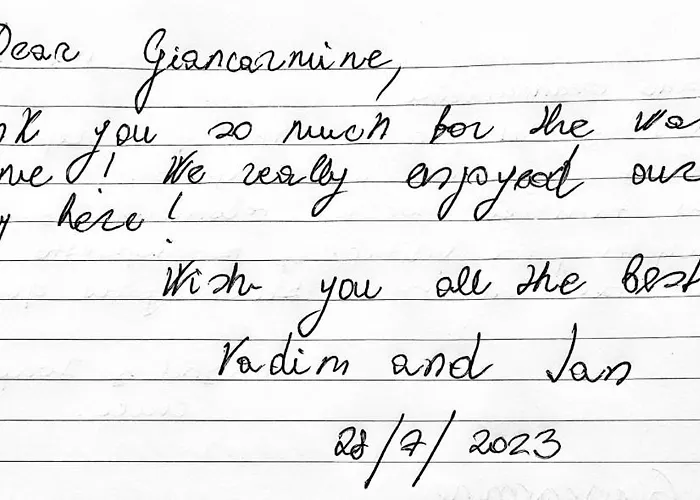 Dear Giancarmine,
nk you so much for the wa
me! We really enjoyed our
y here!
Wish you all the best
Vadim and Jan
28/7/2023